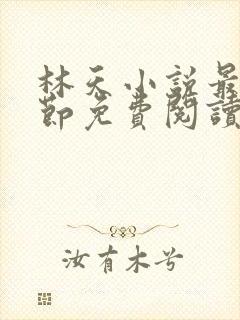 林天小説最
節免費閱讀
汝有木兮